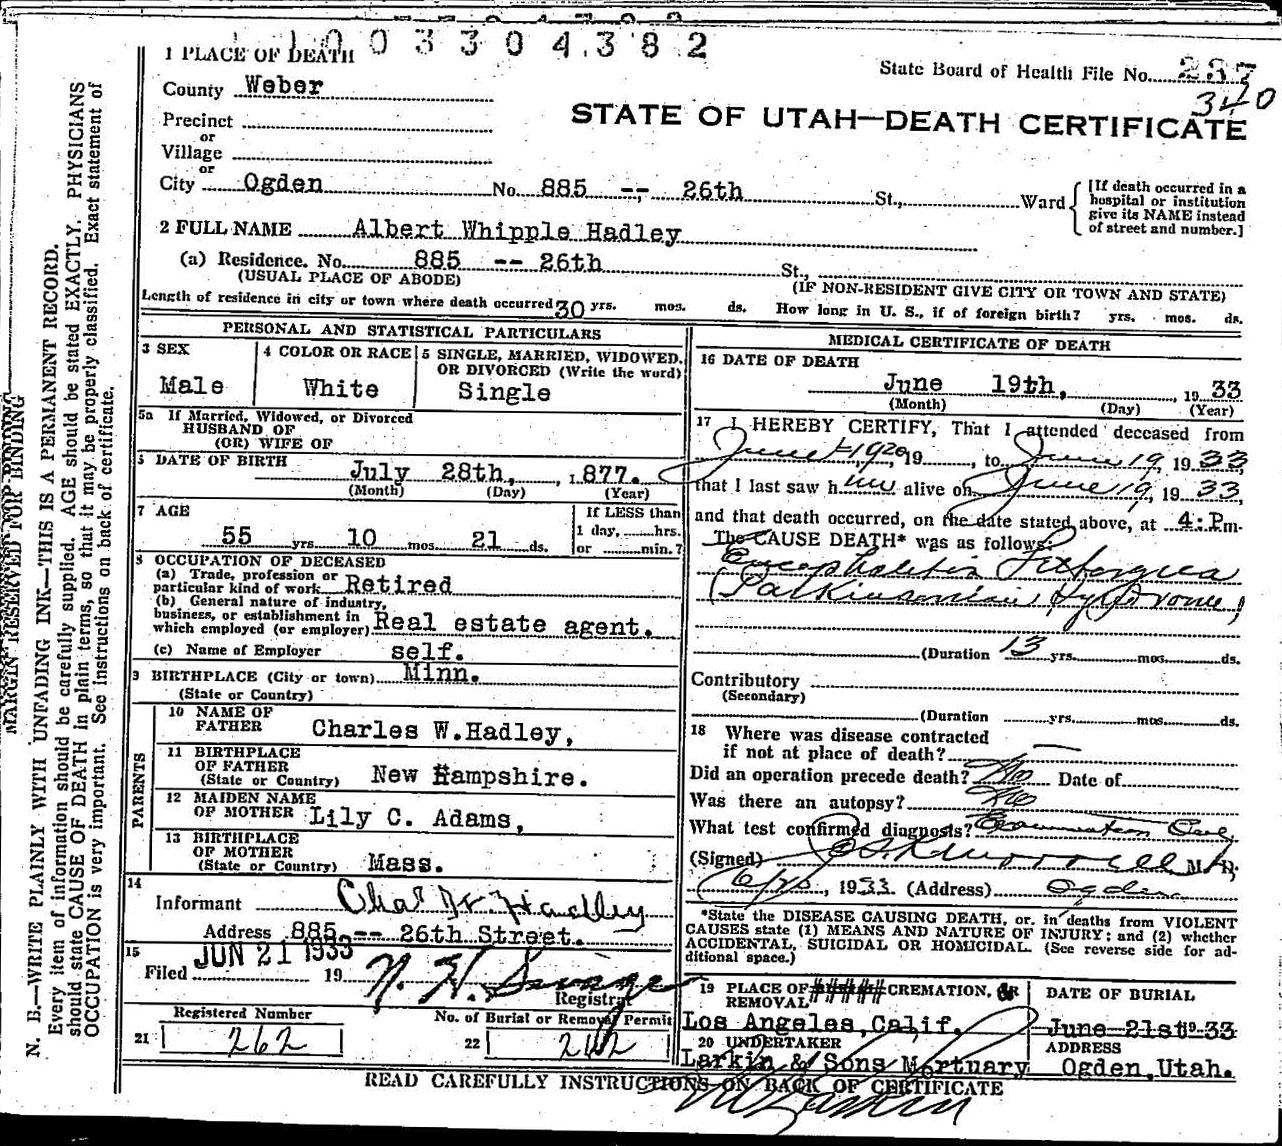 1003304382
1 PLACE OF DEATH
State Board of Health File No. 237
340
County Weber
STATE OF UTAH—DEATH CERTIFICATE
Precinct
or
Village
or
City Ogden No. 885 -- 26th St., Ward
[If death occurred in a
hospital or institution
give its NAME instead
of street and number.]
2 FULL NAME Albert Whipple Hadley
(a) Residence. No. 885 -- 26th St.,
(USUAL PLACE OF ABODE) (IF NON-RESIDENT GIVE CITY OR TOWN AND STATE)
Length of residence in city or town where death occurred 30 yrs. mos. ds. How long in U. S., if of foreign birth? yrs. mos. ds.
PERSONAL AND STATISTICAL PARTICULARS
3 SEX
Male
4 COLOR OR RACE
White
5 SINGLE, MARRIED, WIDOWED,
OR DIVORCED (Write the word)
Single
5a If Married, Widowed, or Divorced
HUSBAND OF
(OR) WIFE OF
DATE OF BIRTH
July 28th, , 1877.
(Month) (Day) (Year)
7 AGE
55 yrs 10 mos. 21 ds.
If LESS than
1 day, hrs.
or min.?
OCCUPATION OF DECEASED
(a) Trade, profession or
particular kind of work Retired
(b) General nature of industry,
business, or establishment in
which employed (or employer) Real estate agent.
(c) Name of Employer self.
9 BIRTHPLACE (City or town) Minn.
(State or Country)
PARENTS
10 NAME OF
FATHER Charles W.Hadley,
11 BIRTHPLACE
OF FATHER
(State or Country) New Hampshire.
12 MAIDEN NAME
OF MOTHER Lily C. Adams,
13 BIRTHPLACE
OF MOTHER
(State or Country) Mass.
14
Informant Chas W. Hadley
Address 885 -- 26th Street.
15
Filed JUN 21 1933 19
N. H. Savage
Registrar
Registered Number
21 262
No. of Burial or Removal Permit
22 262
MEDICAL CERTIFICATE OF DEATH
16 DATE OF DEATH
June 19th, , 1933
(Month) (Day) (Year)
17 I HEREBY CERTIFY, That I attended deceased from
June 1920, 19 , to June 19, 1933
that I last saw him alive on June 19, 1933,
and that death occurred, on the date stated above, at 4:Pm.
The CAUSE DEATH* was as follows:
Encephalitis Lethargica
(Parkinsonian Syndrome)
(Duration 13 yrs. mos. ds.
Contributory
(Secondary)
(Duration yrs. mos. ds.
18 Where was disease contracted
if not at place of death? —
Did an operation precede death? No Date of
Was there an autopsy? No
What test confirmed diagnosis? Examination
(Signed) M. D.
, 1933 (Address) Ogden
*State the DISEASE CAUSING DEATH, or. in deaths from VIOLENT
CAUSES state (1) MEANS AND NATURE OF INJURY; and (2) whether
ACCIDENTAL, SUICIDAL OR HOMICIDAL. (See reverse side for ad-
ditional space.)
19 PLACE OF ##### CREMATION, OR
REMOVAL
Los Angeles,Calif.
DATE OF BURIAL
June 21st 1933
20 UNDERTAKER
Larkin & Sons Mortuary
ADDRESS
Ogden,Utah.
READ CAREFULLY INSTRUCTIONS ON BACK OF CERTIFICATE
MARGIN RESERVED FOR BINDING
N. B.—WRITE PLAINLY WITH UNFADING INK—THIS IS A PERMANENT RECORD.
Every item of information should be carefully supplied. AGE should be stated EXACTLY. PHYSICIANS
should state CAUSE OF DEATH in plain terms, so that it may be properly classified. Exact statement of
OCCUPATION is very important. See instructions on back of certificate.